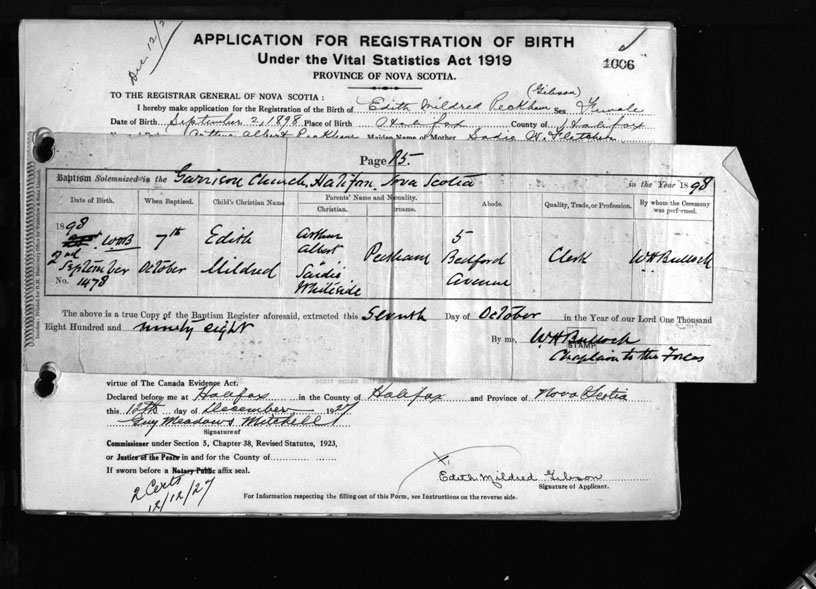 Dec. 12/2
APPLICATION FOR REGISTRATION OF BIRTH
Under the Vital Statistics Act 1919
1006
PROVINCE OF NOVA SCOTIA.
(Gibson)
TO THE REGISTRAR GENERAL OF NOVA SCOTIA:
I hereby make application for the Registration of the Birth of Edith Mildred Peckham Sex Female
Date of Birth September 2, 1898 Place of Birth Halifax County of Halifax
Arthur Albert Peckham Maiden Name of Mother Sadie W. Fletcher
Page 15.
Baptism Solemnized in the Garrison Church, Halifax, Nova Scotia in the Year 1898
Date of Birth. When Baptized. Child's Christian Name Parents' Name and Nationality. Christian. Surname. Abode. Quality, Trade, or Profession. By whom the Ceremony was performed.
1898 WHB 2nd September No. 1478
7th October
Edith Mildred
Arthur Albert Sardis Whiteside
Peckham
5 Bedford Avenue
Clerk
WH Bullock
The above is a true Copy of the Baptism Register aforesaid, extracted this Seventh Day of October in the Year of our Lord One Thousand
Eight Hundred and ninety eight
By me, WH Bullock
STAMP
Chaplain to the Forces
virtue of The Canada Evidence Act.
Declared before me at Halifax in the County of Halifax and Province of Nova Scotia
this 12th day of December 1927
Guy Meadows Mitchell
Signature of
Commissioner under Section 5, Chapter 38, Revised Statutes, 1923,
or Justice of the Peace in and for the County of
If sworn before a Notary Public affix seal.
Edith Mildred Gibson
Signature of Applicant.
2 Certs
12/12/27
For Information respecting the filling out of this Form, see Instructions on the reverse side.